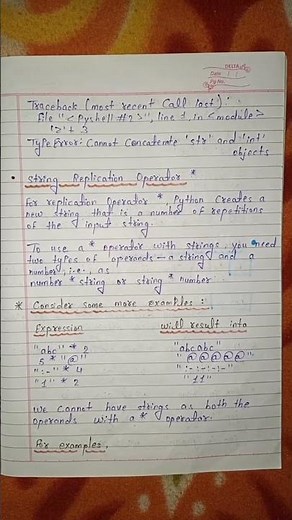 DELTA
Date
Pg No.
Traceback (most recent call last):
File "<Pyshell #2>", line 1, in <module>
'2' + 3
Type Error: Cannot concatenate 'str' and 'int'
objects
• String Replication Operator *
For replication operator * Python creates a
new string that is a number of repetitions
of the input string.
To use a * operator with strings, you need
two types of operands – a string and a
number, i.e., as
number * string or string * number.
* Consider some more examples :
Expression will result into
"abc" * 2 "abcabc"
5 * "@" "@@@@@"
":-" * 4 ":-:-:-:-"
"1" * 2 "11"
We cannot have strings as both the
operands with a * operator.
For examples,